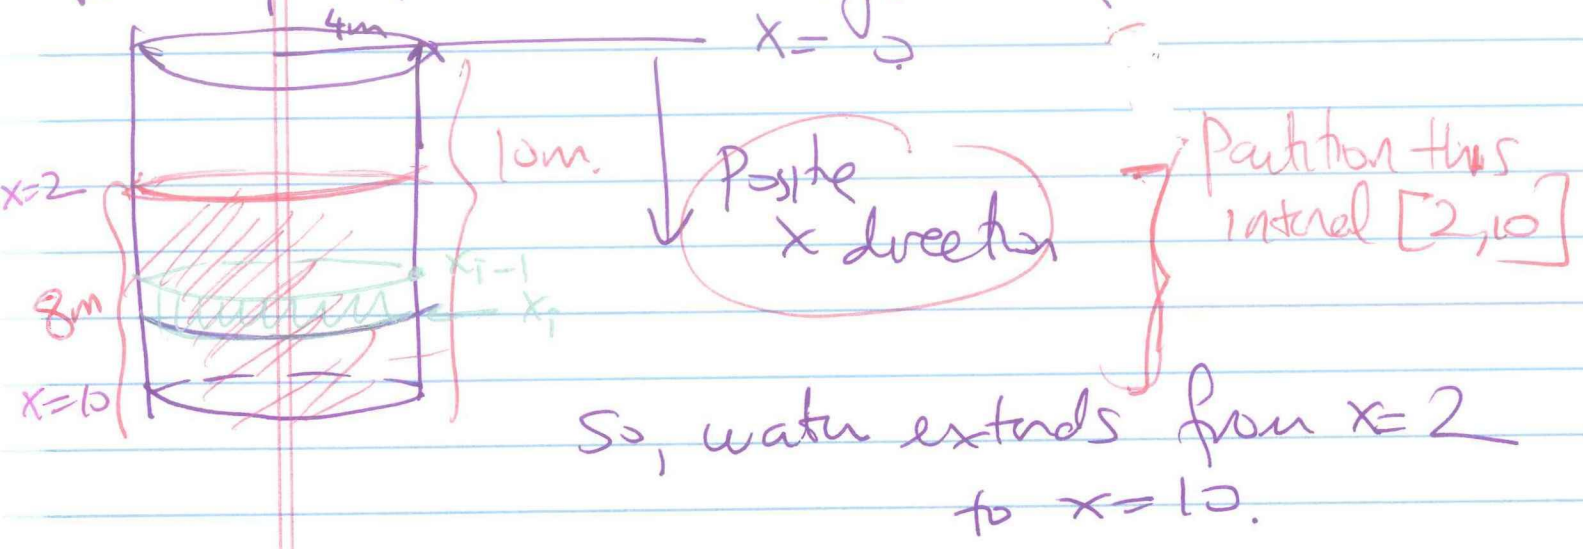 4m
x=0
10m.
Positive
x direction
Partition this
interval [2,10]
x=2
xi-1
8m
xi
x=10
So, water extends from x=2
to x=10.